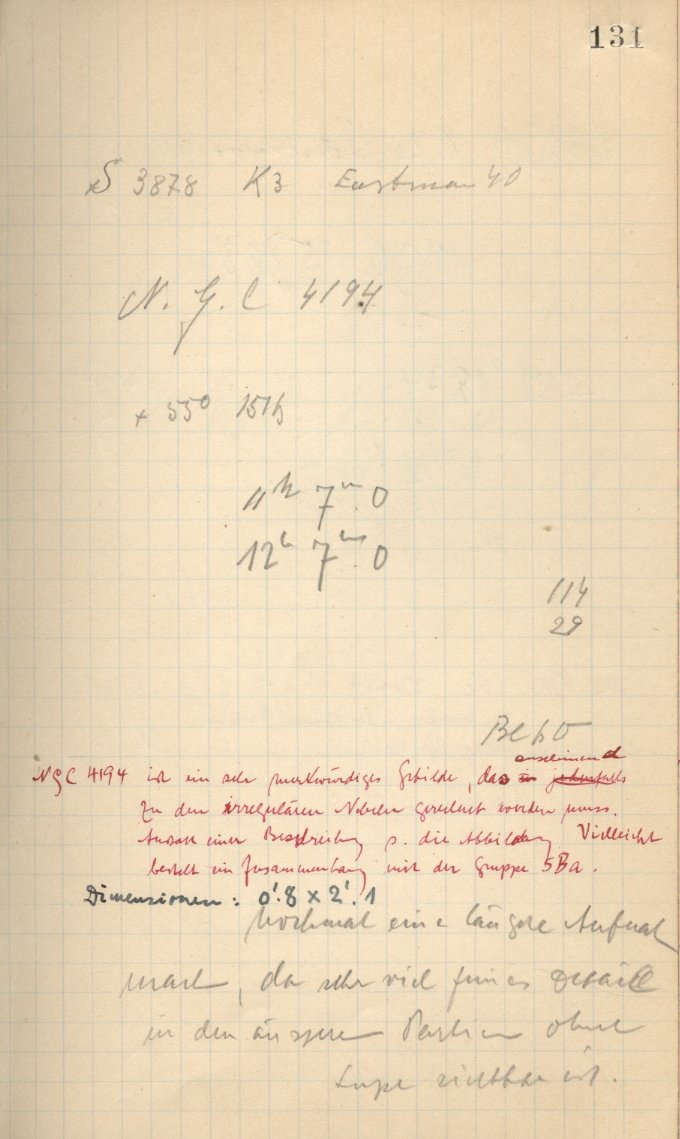 131
S 3878 K3 Eastman 40
N. G. C 4194
+ 55°
11h 7m.0
12h 7m.0
114
29
NGC 4194 ist ein sehr merkwürdiges Gebilde, das anscheinend jedenfalls
zu den irregulären Nebeln gerechnet werden muss.
Anstatt einer Beschreibung s. die Abbildung Vielleicht
besteht ein Zusammenhang mit der Gruppe SBa.
Dimensionen: 0'.8 × 2'.1
Nochmal eine längere Aufnahme
machen, da sehr viel feines Detail
in den äusseren Partien ohne
Lupe sichtbar ist.